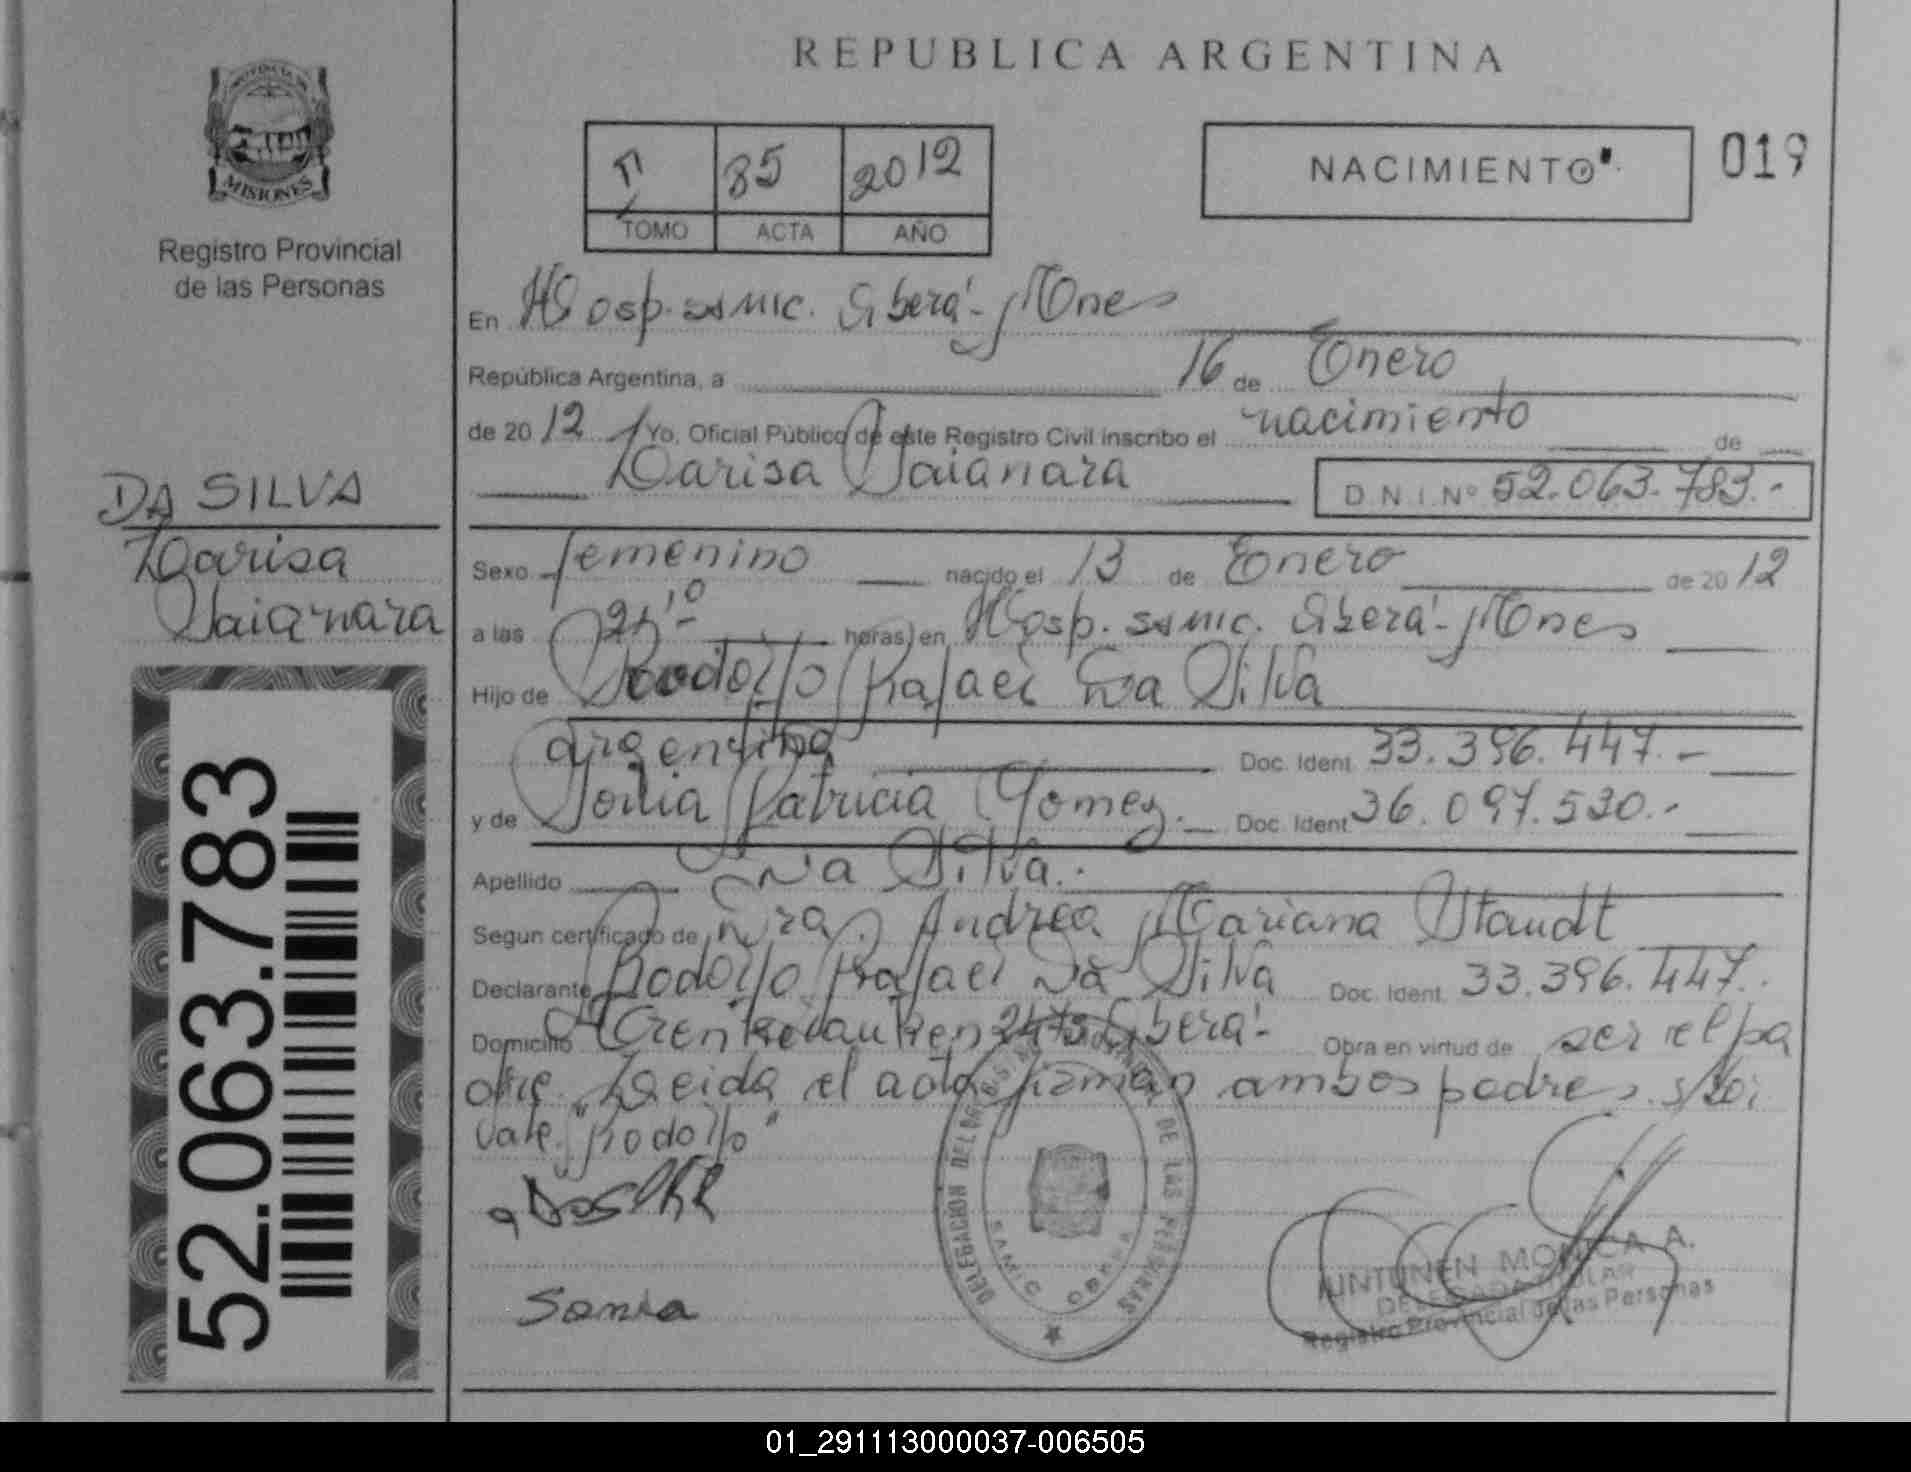 PROVINCIA DE
MISIONES
Registro Provincial
de las Personas
DA SILVA
Larisa
Daianara
52.063.783
REPUBLICA ARGENTINA
85 2012
TOMO ACTA AÑO
NACIMIENTO
019
En Hosp. samic. Oberá - Mnes
República Argentina, a 16 de Enero
de 20 12 Yo, Oficial Público de este Registro Civil inscribo el nacimiento de
Larisa Daianara D.N.I. Nº 52.063.783.-
Sexo femenino nacido el 13 de Enero de 20 12
a las 21,10 horas, en Hosp. samic. Oberá - Mnes
Hijo de Rodolfo Rafael Da Silva
argentino Doc. Ident. 33.396.447.-
y de Sonia Patricia Gomez.- Doc. Ident. 36.097.530.-
Apellido Da Silva.-
Segun certificado de Dra. Andrea Mariana Staudt
Declarante Rodolfo Rafael Da Silva Doc. Ident. 33.396.447.
Domicilio 2473 Oberá - Obra en virtud de ser el pa
dre. Leida el acta firman ambos padres. s/
vale. "Rodolfo"
Sonia
DELEGACION DEL DE LAS PERSONAS
SAMIC OBERA
JUNTUNEN MONICA A.
DELEGADA TITULAR
Registro Provincial de las Personas
01_291113000037-006505